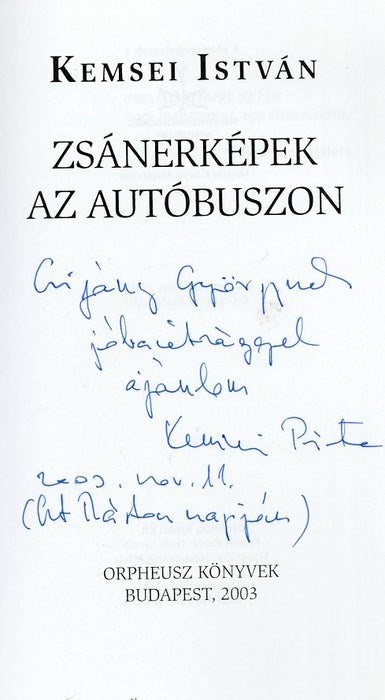 KEMSEI ISTVÁN
ZSÁNERKÉPEK
AZ AUTÓBUSZON
Györgynek
jóbarátsággal
ajánlom
Kemsei Pista
2003. nov. 11.
(Szt Márton napján)
ORPHEUSZ KÖNYVEK
BUDAPEST, 2003